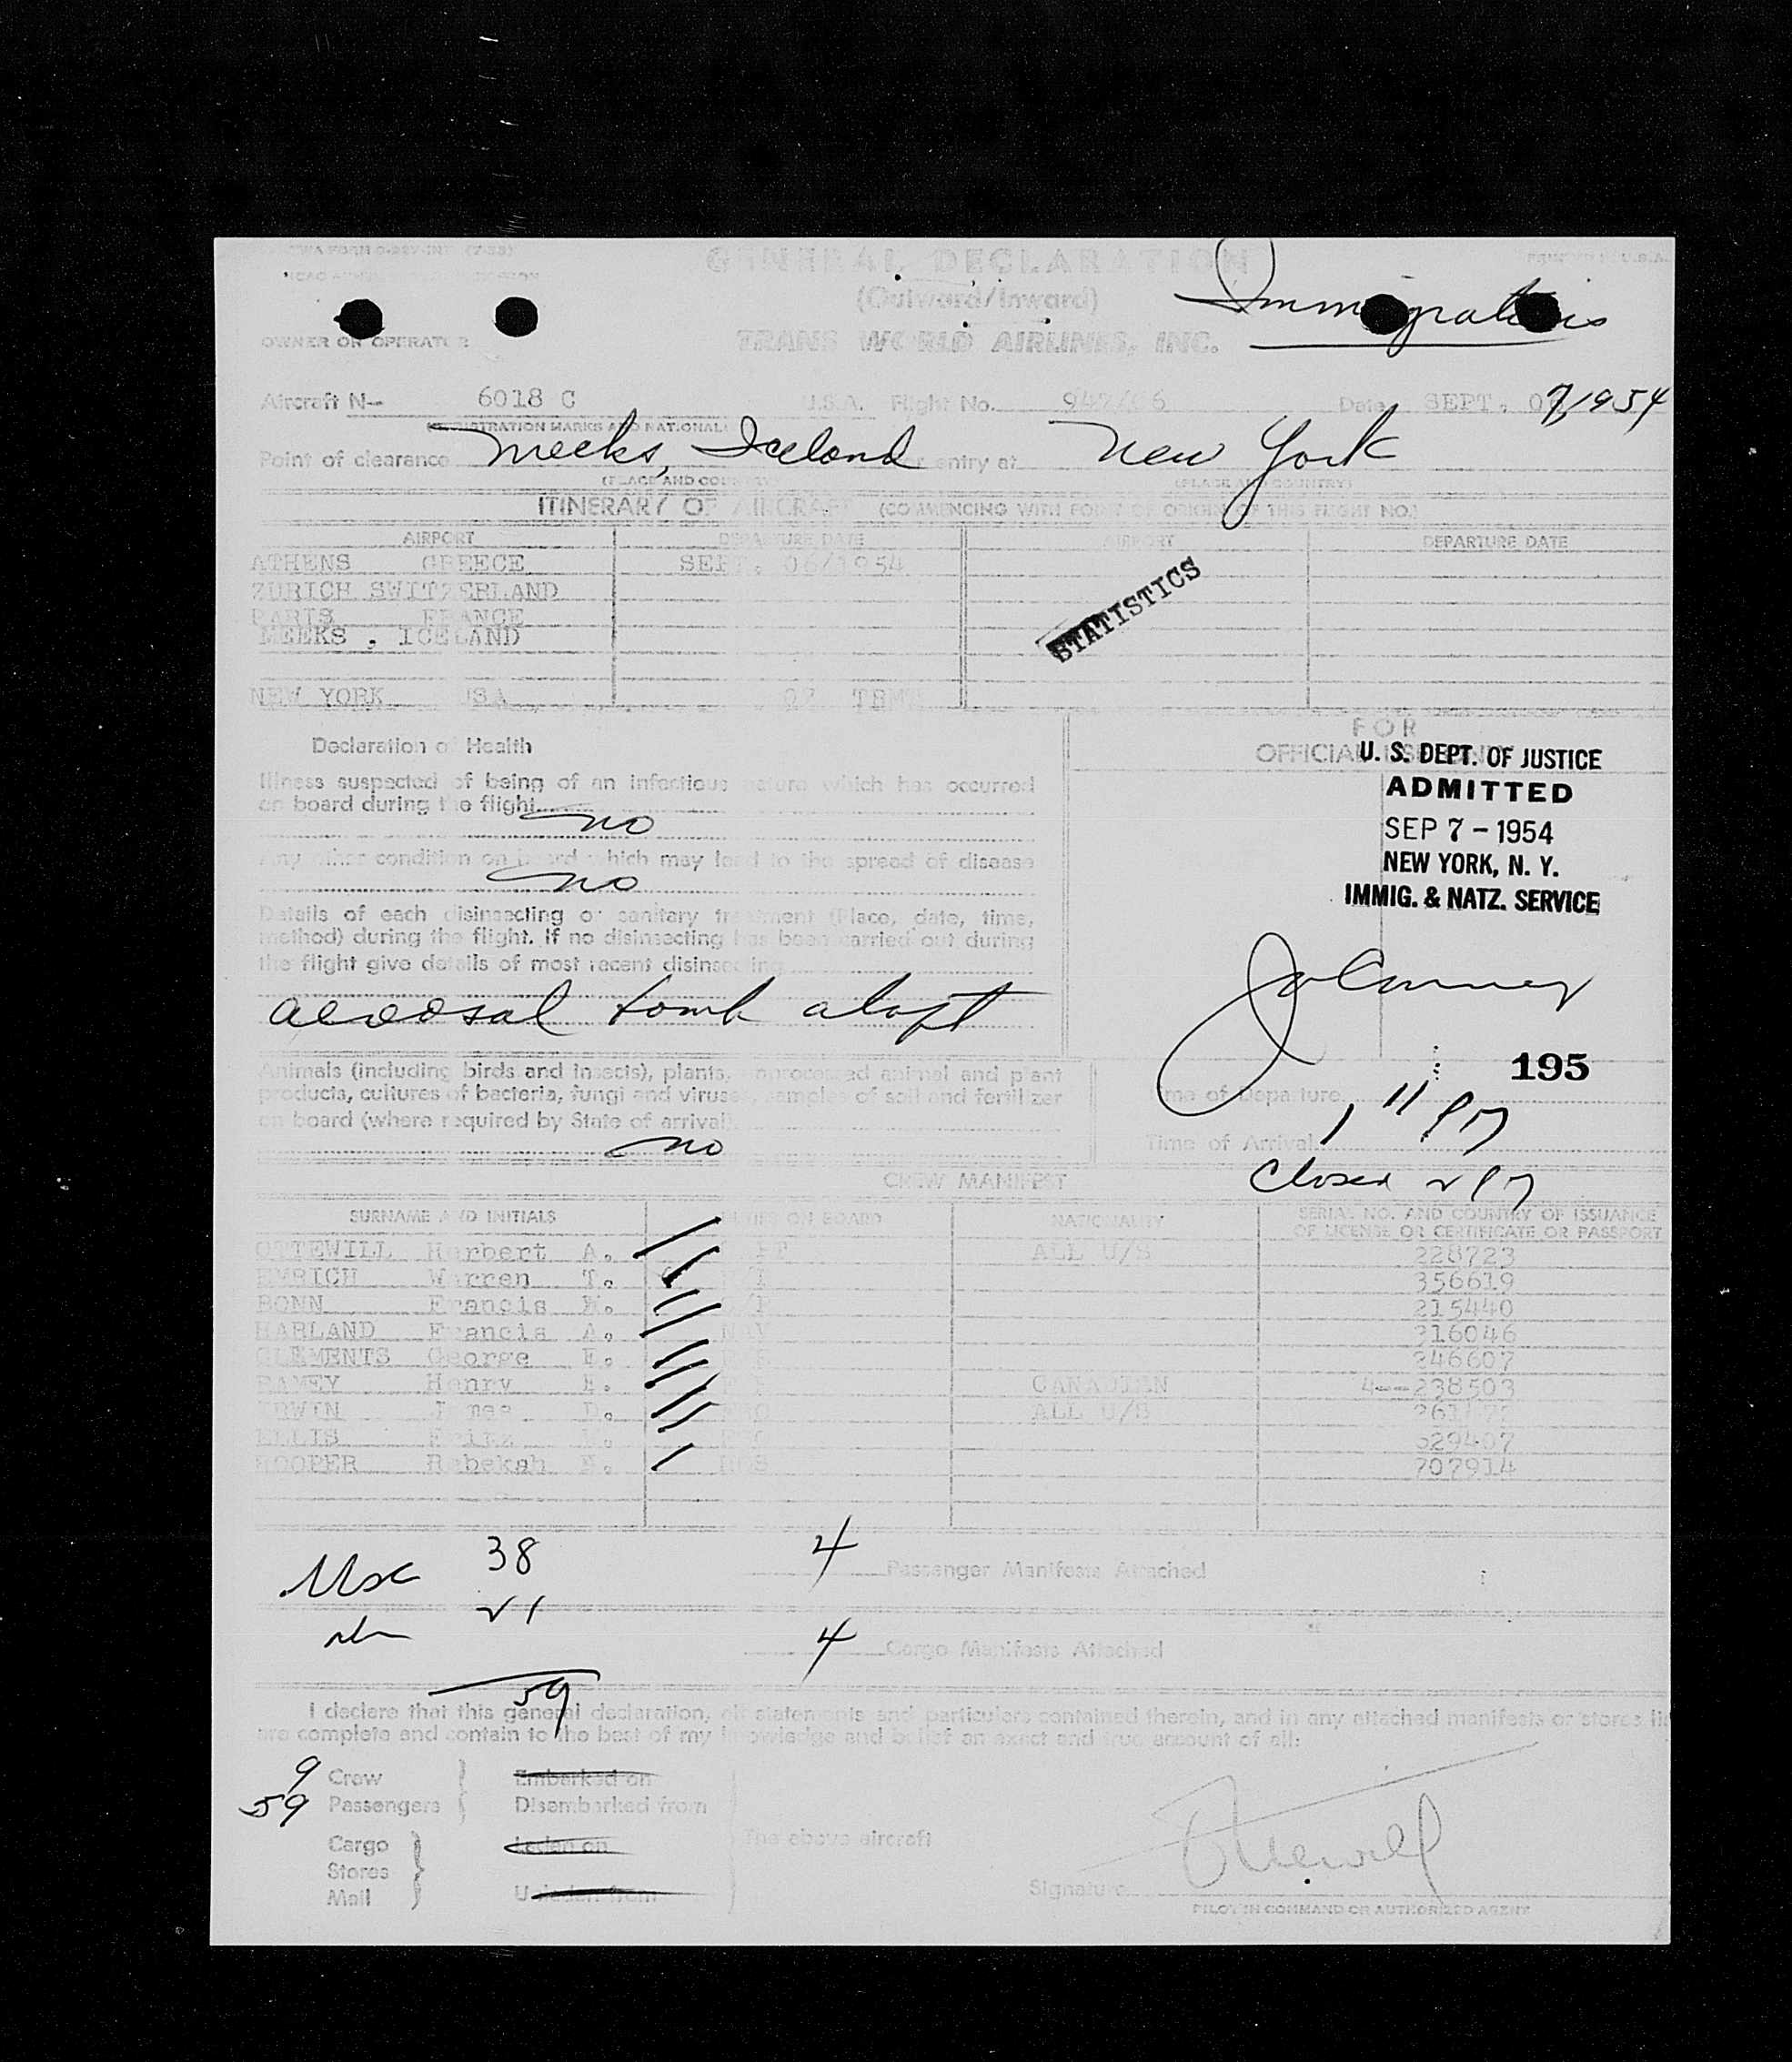 GENERAL DECLARATION
(Outward/Inward)
Immigration
OWNER OR OPERATOR
TRANS WORLD AIRLINES, INC.
Aircraft N-- 6018 C U.S.A. Flight No. Date SEPT. 07/1954
(REGISTRATION MARKS AND NATIONALITY)
Point of clearance Meeks, Iceland For entry at New York
(PLACE AND COUNTRY) (PLACE AND COUNTRY)
ITINERARY OF AIRCRAFT (COMMENCING WITH POINT OF ORIGIN OF THIS FLIGHT NO.)
AIRPORT DEPARTURE DATE AIRPORT DEPARTURE DATE
ATHENS GREECE SEPT. 06/1954
ZURICH SWITZERLAND
PARIS FRANCE
MEEKS , ICELAND
STATISTICS
NEW YORK USA 07 TERM
FOR
OFFICIAL USE ONLY
Declaration of Health
Illness suspected of being of an infectious nature which has occurred
on board during the flight
no
Any other condition on board which may lead to the spread of disease
no
Details of each disinsecting or sanitary treatment (Place, date, time,
method) during the flight. If no disinsecting has been carried out during
the flight give details of most recent disinsecting
aerosal bomb aloft
U. S. DEPT. OF JUSTICE
ADMITTED
SEP 7 - 1954
NEW YORK, N. Y.
IMMIG. & NATZ. SERVICE
195
Animals (including birds and insects), plants, unprocessed animal and plant
products, cultures of bacteria, fungi and viruses, samples of soil and fertilizer
on board (where required by State of arrival)
no
Time of Departure
Time of Arrival 1 11 PM
Closed 2 PM
CREW MANIFEST
SURNAME AND INITIALS DUTIES ON BOARD NATIONALITY SERIAL NO. AND COUNTRY OF ISSUANCE
OF LICENSE OR CERTIFICATE OR PASSPORT
OTTEWILL Herbert A. ALL U/S 228723
EMRICH Warren T. 356619
BONN Francis 215440
HARLAND Francis A. 316046
CLEMENTS George E. 246607
RAMEY Henry E. CANADIAN 4--238503
ERWIN James D. ALL U/S
ELLIS Fritz 529407
HOOPER Rebekah HOS 707914
Usc 38 4 Passenger Manifests Attached
21
4 Cargo Manifests Attached
59
I declare that this general declaration, all statements and particulars contained therein, and in any attached manifests or stores li
are complete and contain to the best of my knowledge and belief an exact and true account of all:
9 Crew Embarked on
59 Passengers Disembarked from
Cargo Laden on The above aircraft
Stores
Mail Unladen from
Signature Ottewill
PILOT IN COMMAND OR AUTHORIZED AGENT